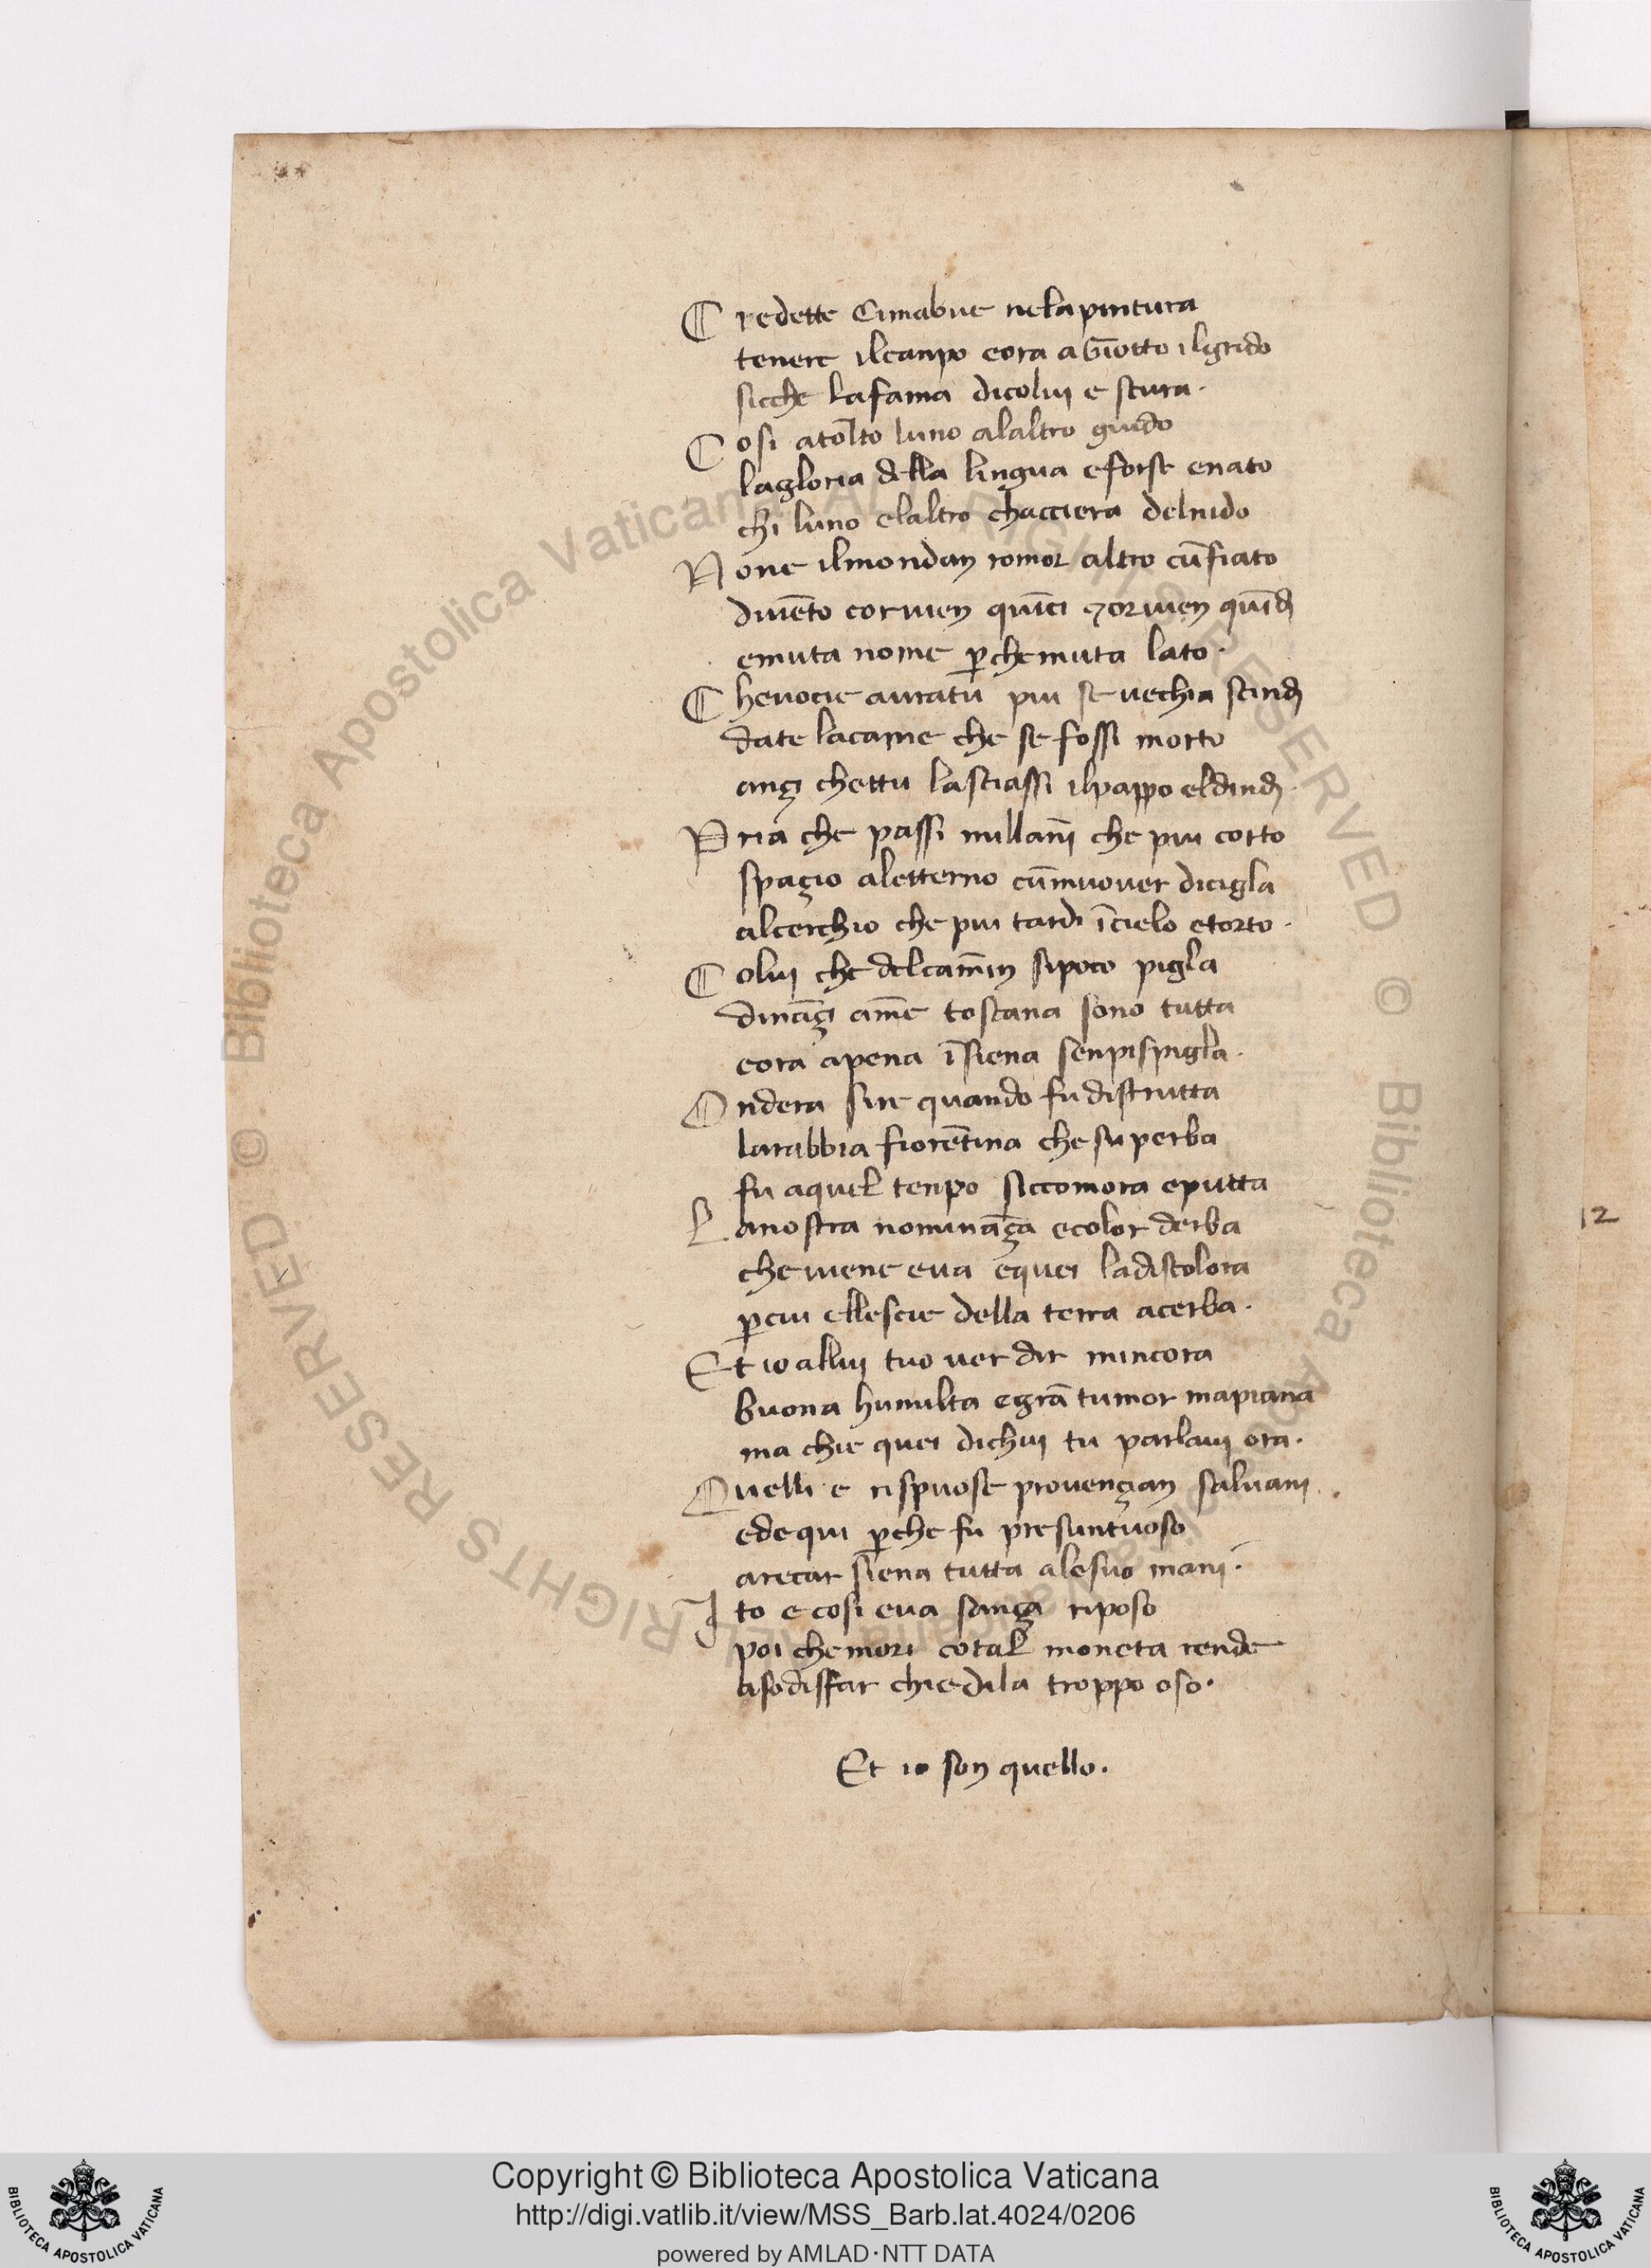 C redette Cimabue nelapintura
tenere ilcanpo eora aGiotto ilgrido
sicche lafama dicoluj e scura.
C osi atolto luno alaltro guido
lagloria della lingua eforse enato
chi luno elaltro chacciera delnido
N one ilmondan romor altro cūfiato
diuēto cor vien quīci ⁊or vien quīdj
emuta nome ꝑchemuta lato.
C heuocie auratu piu se uechia scindj
date lacarne che se fossi morto
anҫ chettu lasciassi ilpappo eldindj
P ria che passi millanī che piu corto
spaҫio aletterno cūmuouer dicigla
alcerchio che piu tardi īcielo etorto.
C oluj che delcamīn sipoco pigla
dināҫi amē toscana sono tutta
eora apena īsiena senpispigla.
O ndera sire quando fudistrutta
larabbia fiorētina che superba
fu aquel tenpo siccomora eputta
L anostra nomināҫa ecolor derba
cheuiene eua equei ladiscolora
ꝑcui ellescie della terra acerba.
Et io alluj tuo uer dir mincora
buona humilta egrā tumor mapiana
ma chie quei dichuj tu parlauj ora.
Q uelli e rispuose prouenҫan saluani
ede qui ꝑche fu presuntuoso
arecar siena tutta alesuo mani.
I to e cosi eua sanҫa riposo
poi chemori cotal moneta rende
asodisfar chiedila troppo oso.
Et io son quello.
12
Copyright © Biblioteca Apostolica Vaticana
http://digi.vatlib.it/view/MSS_Barb.lat.4024/0206
powered by AMLAD·NTT DATA
BIBLIOTECA APOSTOLICA VATICANA
BIBLIOTECA APOSTOLICA VATICANA
© Biblioteca Apostolica Vaticana ALL RIGHTS RESERVED
© Biblioteca Apostolica Vaticana ALL RIGHTS RESERVED